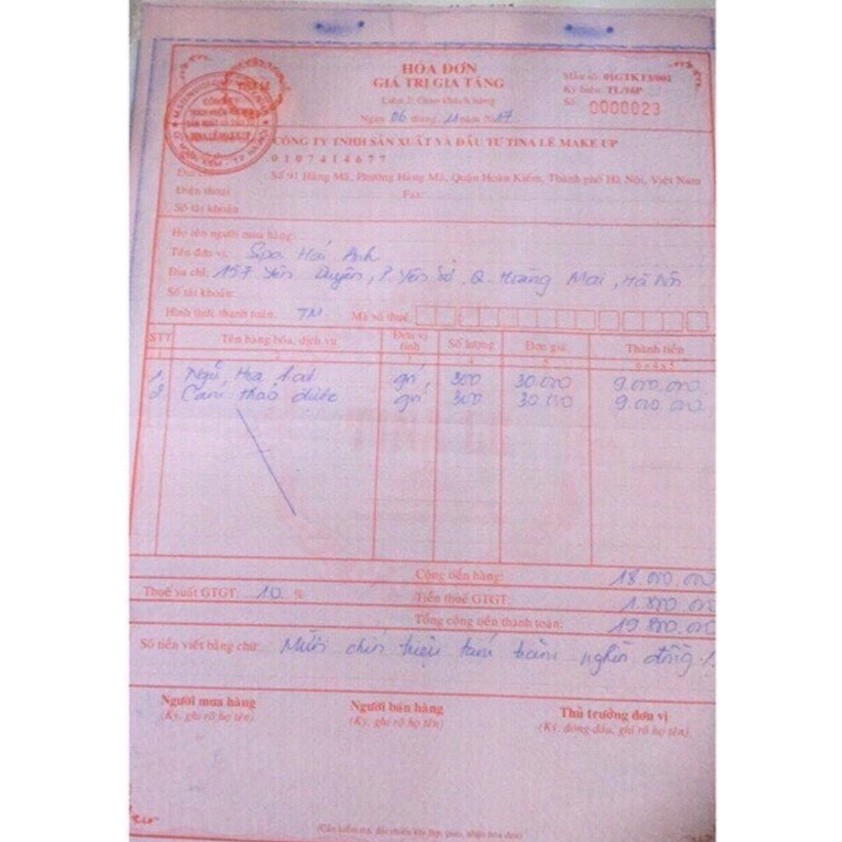 HÓA ĐƠN
GIÁ TRỊ GIA TĂNG
Liên 2: Giao khách hàng
Ngày 06 tháng 11 năm 2017
Mẫu số: 01GTKT3/001
Ký hiệu: TL/16P
Số: 0000023
CÔNG TY TNHH SẢN XUẤT VÀ ĐẦU TƯ TINA LÊ MAKE UP
0107414677
Địa chỉ: Số 91 Hàng Mã, Phường Hàng Mã, Quận Hoàn Kiếm, Thành phố Hà Nội, Việt Nam
Điện thoại Fax:
Số tài khoản
Họ tên người mua hàng:
Tên đơn vị: Spa Hải Anh
Địa chỉ: 157 Yên Duyên, P. Yên Sở, Q. Hoàng Mai, Hà Nội
Số tài khoản:
Hình thức thanh toán: TM Mã số thuế:
STT Tên hàng hóa, dịch vụ Đơn vị tính Số lượng Đơn giá Thành tiền
1 2 3 4 5 6=4x5
1. Ngũ Hoa gói 300 30.000 9.000.000
2. Cam thảo gói 300 30.000 9.000.000
Cộng tiền hàng: 18.000.000
Thuế suất GTGT: 10 % Tiền thuế GTGT: 1.800.000
Tổng cộng tiền thanh toán: 19.800.000
Số tiền viết bằng chữ: Mười chín triệu tám trăm nghìn đồng ./.
Người mua hàng Người bán hàng Thủ trưởng đơn vị
(Ký, ghi rõ họ tên) (Ký, ghi rõ họ tên) (Ký, đóng dấu, ghi rõ họ tên)
(Cần kiểm tra, đối chiếu khi lập, giao, nhận hóa đơn)